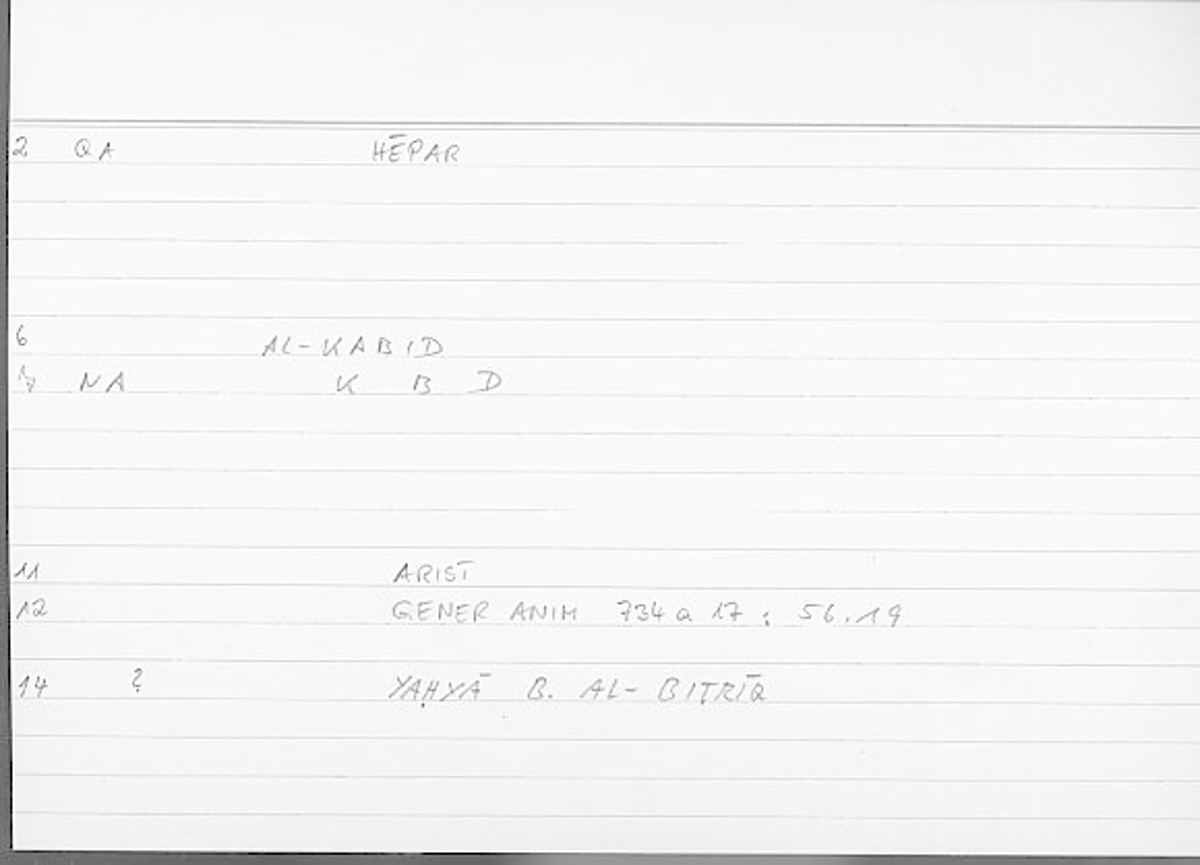 2 QA HĒPAR
6 AL-KABID
7 NA K B D
11 ARIST
12 GENER ANIM 734 a 17 : 56.19
14 ? YAḤYĀ B. AL-BIṬRĪQ